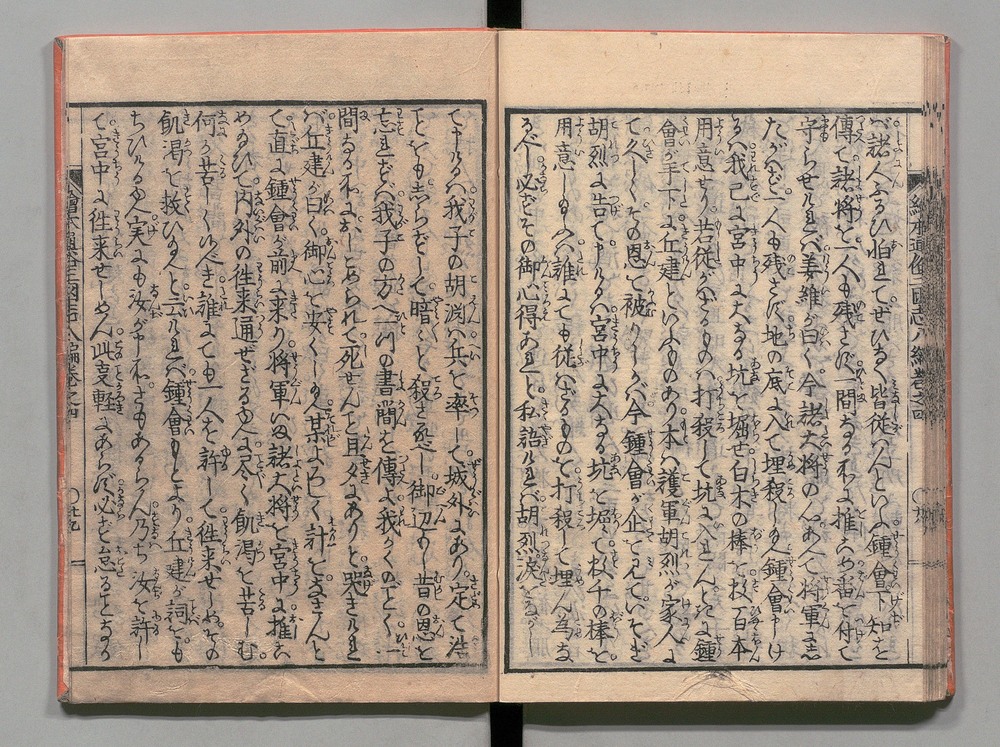 バ諸人ふるひ怕れてぜひなく皆従ハんといふ鍾會下知を
傳て諸将を一人も残さず一間なる所に推こめ番を付て
守らせけれバ姜維が曰く今諸大将のめん〳〵人将軍に志
たがハず一人も残さず地の底に入て埋殺し給へ鍾會申け
るハ我已に宮中に大なる坑を堀せ白木の棒を数百本
用意せり若従がハざるものハ打殺して坑に入れんとた鍾
會が手下に丘建といふものあり本ハ護軍胡烈が家人に
て久しくその恩を被りしが今鍾會が企を見ていそぎ
胡烈に告て申けるハ宮中に大なる坑を堀て数千の棒を
用意し給ふハ誰にても従ハざるものを打殺して埋ん為な
るべし必ずその御心得あれと私語けれバ胡烈涙をながし
て申けるハ我子の胡渕ハ兵を率して城外にあり定て此
ことをも志らずして暗々と殺さるべし御辺もし昔の恩を
忘れずバ我子の方へ一封の書簡を傳よ我かくのごとく一
間なる所におしこめられて死せんと旦夕にありと哭きけれ
バ丘建が曰く御心を安くし給へ某よろしく計をなさんと
て直に鍾會が前に来り将軍いま諸大将を宮中に推こ
め給ひて内外の往来通ぜざるゆへに尽く飢渇を苦しむ
何か苦しく候べき誰にても一人を許して往来せしめその
飢渇を救ひ給へと云けれバ鍾會もとより丘建が詞をも
ちひけるゆへ実にも汝が申所さもあらん乃ち汝を許し
て宮中に往来せしめん此事軽にあらず必ず怠ることなかれ
繪本通俗三國志八編巻之四
〇廿九
繪本通俗三國志八編巻之四